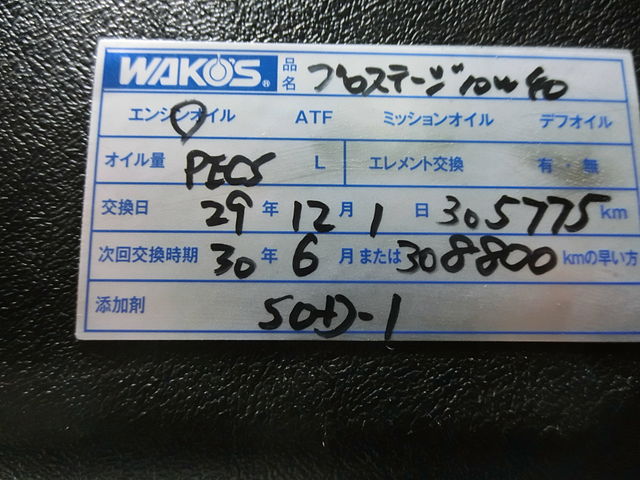 WAKO'S® 品名 プロステージ10W40
エンジンオイル ATF ミッションオイル デフオイル
オイル量 PECS L エレメント交換 有・無
交換日 29年12月1日 305775km
次回交換時期 30年6月または308800kmの早い方
添加剤 SOD-1